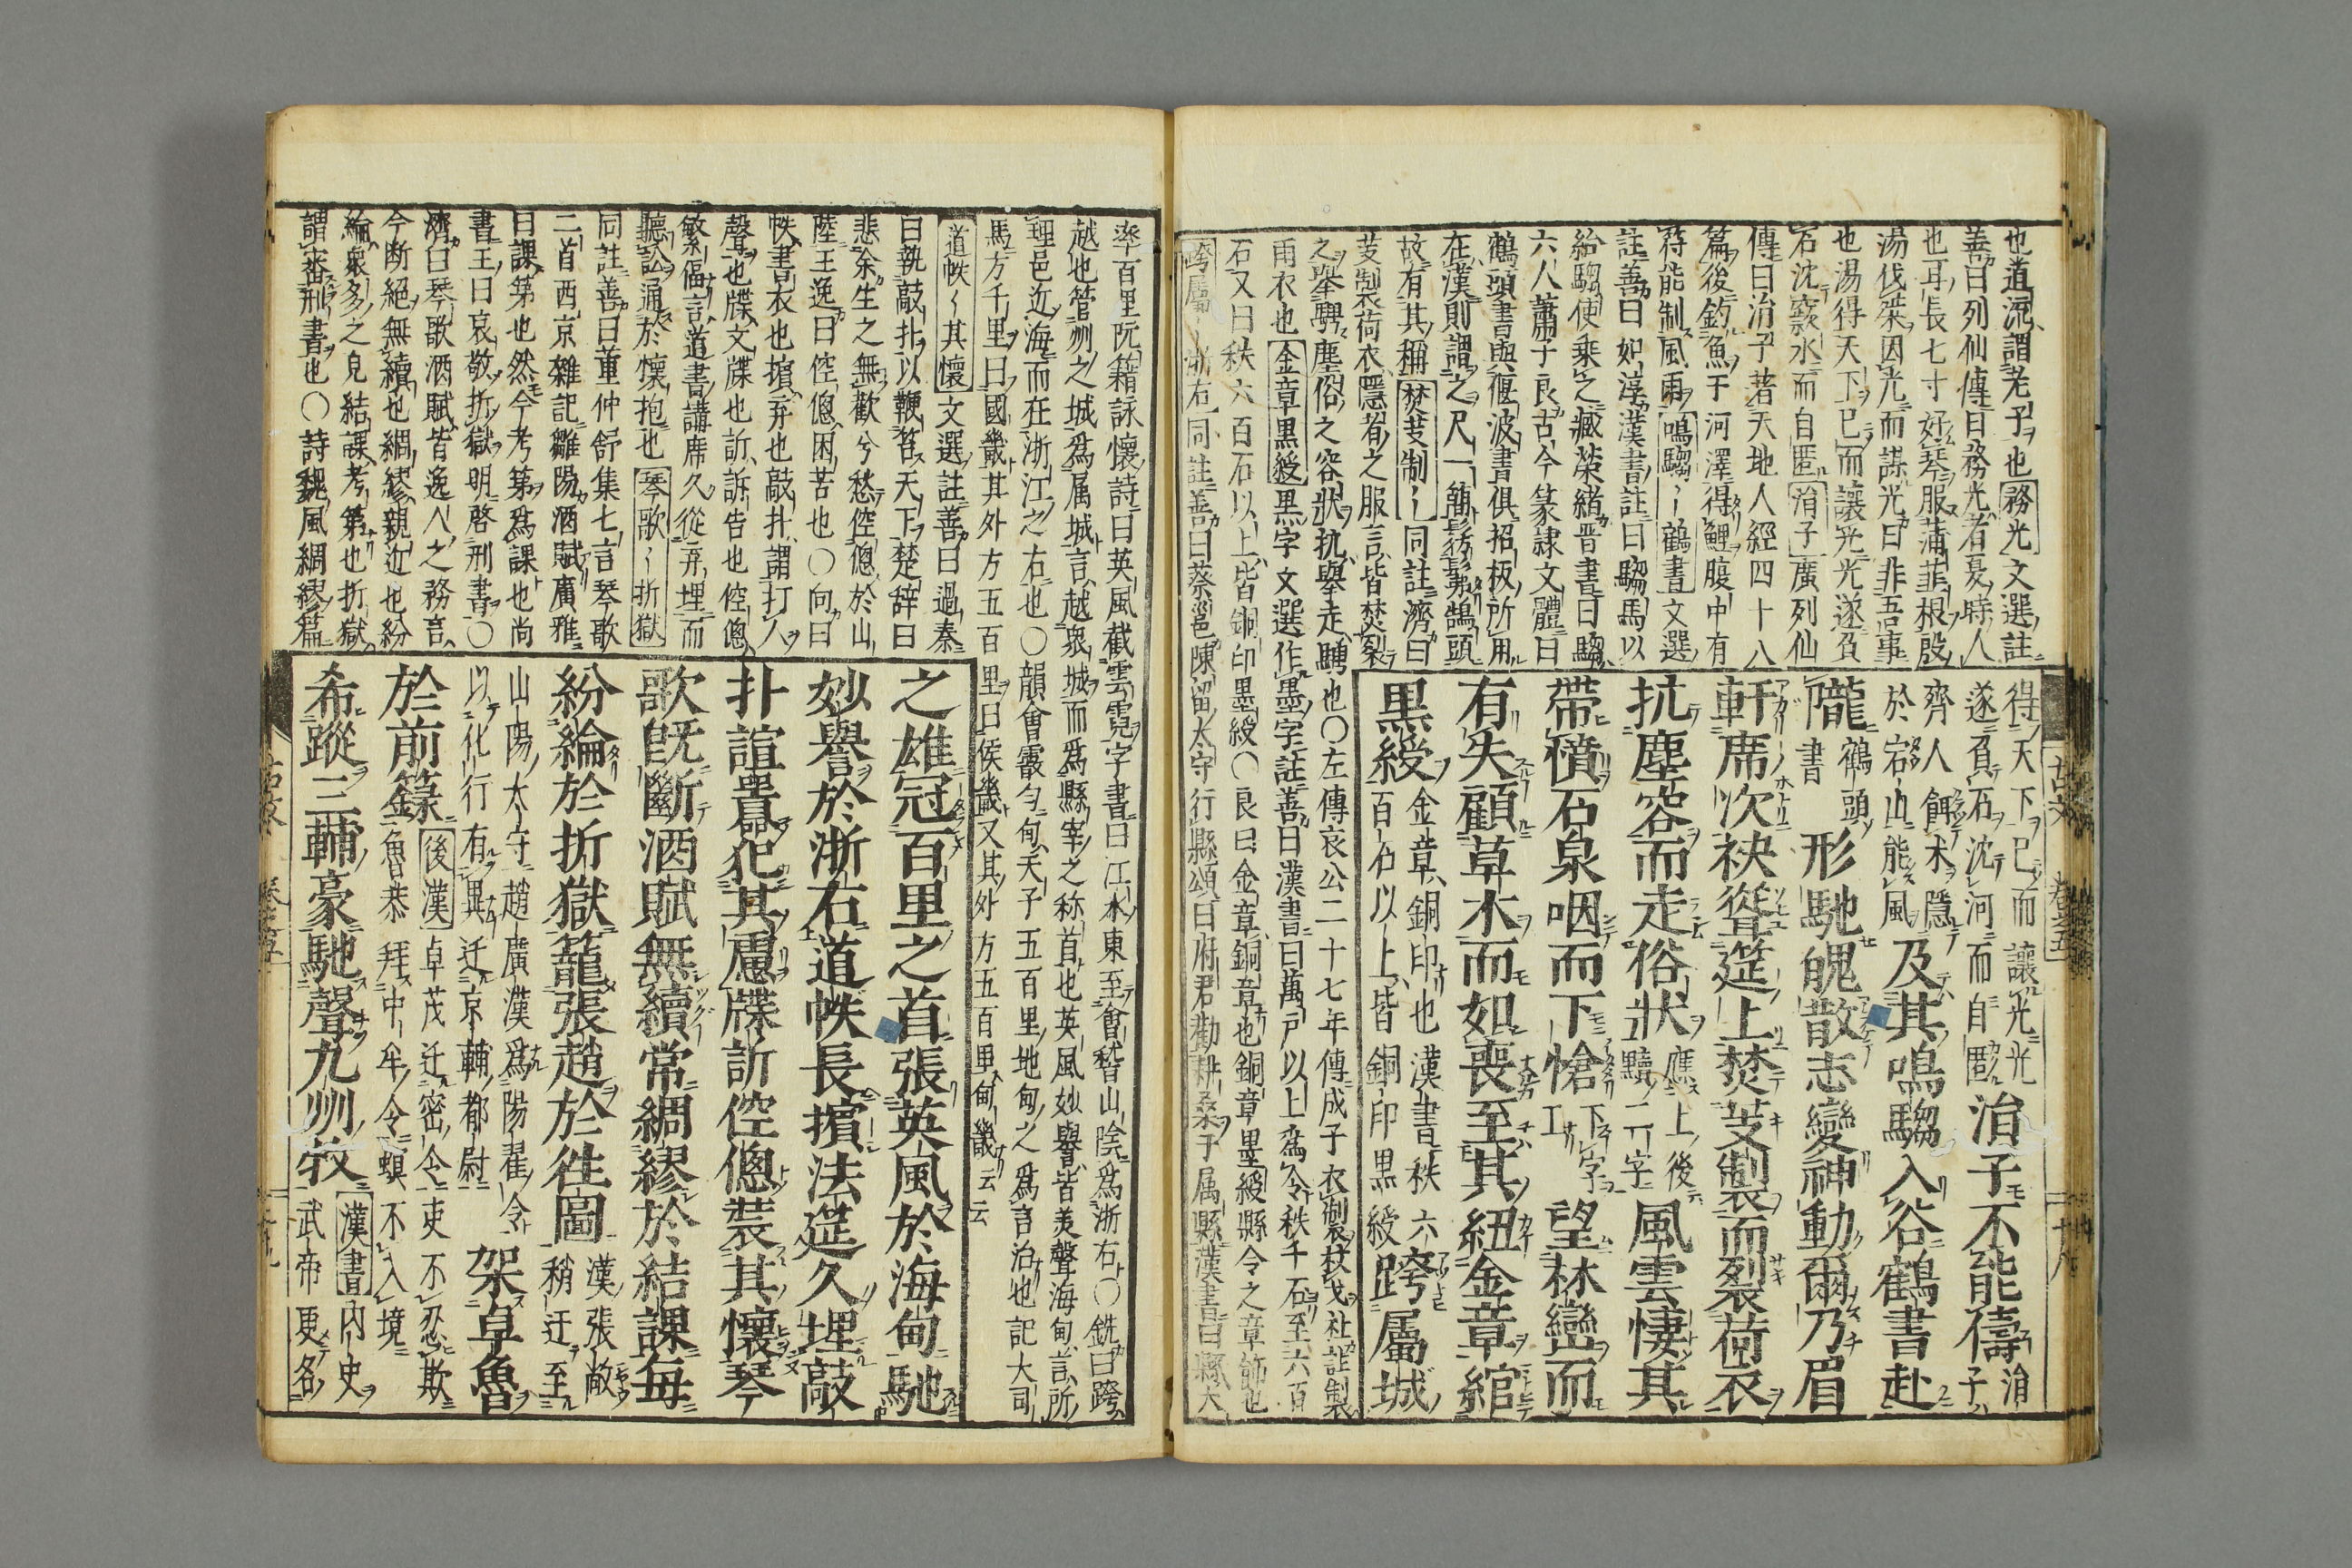 也道流謂老子也務光文選註
善曰列仙傳曰務光者夏時人
也耳長七寸好琴服蒲韮根殷
湯伐桀因光而謀光曰非吾事
也湯得天下已而讓光光遂負
石沈窾水而自匿涓子廣列仙
傳曰涓子著天地人經四十八
篇後釣魚于河澤得鯉腹中有
符能制風雨鳴騶〻鶴書文選
註善曰如淳漢書註曰騶馬以
給騶使乘之臧榮緒晋書曰騶
六人蕭子良古今篆隷文體曰
鶴頭書與偃波書俱招板所用
在漢則謂之尺一簡髣髴鵠頭
故有其稱焚芰制〻同註濟曰
芰製荷衣隱者之服言皆焚裂
之擧騁塵俗之容狀抗擧走騁也〇左傳哀公二十七年傳成子衣製杖戈社註製
雨衣也金章黒綬黒字文選作墨字註善曰漢書曰萬戸以上為令秩千石至六百
石又曰秩六百石以上皆銅印墨綬〇良曰金章銅章也銅章墨綬縣令之章飾也
跨屬〻浙右同註善曰蔡邕陳留太守行縣頌曰府君勸耕桑于属縣漢書曰縣大
得天下已而讓光光
遂負石沈河而自匿涓子不能儔涓子
齊人餌朮隱
於宕山能風及其鳴騶入谷鶴書赴
隴鶴頭書形馳魄散志變神動爾乃眉
軒席次袂聳筵上焚芰製而裂荷衣
抗塵容而走俗狀應上後黷二字風雲悽其
帶憤石泉咽而下愴下字工望林巒而
有失顧草木而如喪至其紐金章綰
黒綬金章銅印也漢書秩六
百石以上皆銅印黒綬跨屬城
古文 卷之五 十八
率百里阮籍詠懷詩曰英風截雲霓字書曰江水東至會稽山陰爲浙右〇銑曰跨
越也管州之城爲属城言越衆城而爲縣宰之称首也英風妙譽皆美聲海甸言所
理邑近海而在浙江之右也〇韻會霰勻甸天子五百里地甸之爲言治也記大司
馬方千里曰國畿其外方五百里曰侯畿又其外方五百里甸畿云云
道帙〻其懷文選註善曰過秦
曰執敲扑以鞭笞天下楚辞曰
悲余生之無歡兮愁倥偬於山
陸王逸曰倥偬困苦也〇向曰
帙書衣也擯弃也敲扑謂打人
聲也牒文牒也訢訴告也倥偬
繁偪言道書講席久從弃埋而
聽訟通於懷抱也琴歌〻折獄
同註善曰董仲舒集七言琴歌
二首西京雜記鄒陽酒賦廣雅
曰課第也然今考第爲課也尚
書王曰哀敬折獄明啓刑書〇
濟曰琴歌酒賦皆逸人之務言
今断絶無續也綢繆親近也紛
綸衆多之皃結課考第也折獄
謂審刑書也〇詩魏風綢繆篇
之雄冠百里之首張英風於海甸馳
妙譽於浙右道帙長擯法筵久埋敲
扑諠囂犯其慮牒訢倥偬裝其懷琴
歌既斷酒賦無續常綢繆於結課每
紛綸於折獄籠張趙於徃圖漢張敞稍迁至
山陽太守趙廣漢爲陽翟令
以化行有異迁京輔都尉架卓魯
於前籙後漢卓茂迁密令吏不忍欺
魯恭拜中牟令螟不入境
希蹤三輔豪馳聲九州牧漢書内史武帝更名
古文 卷之五 十九